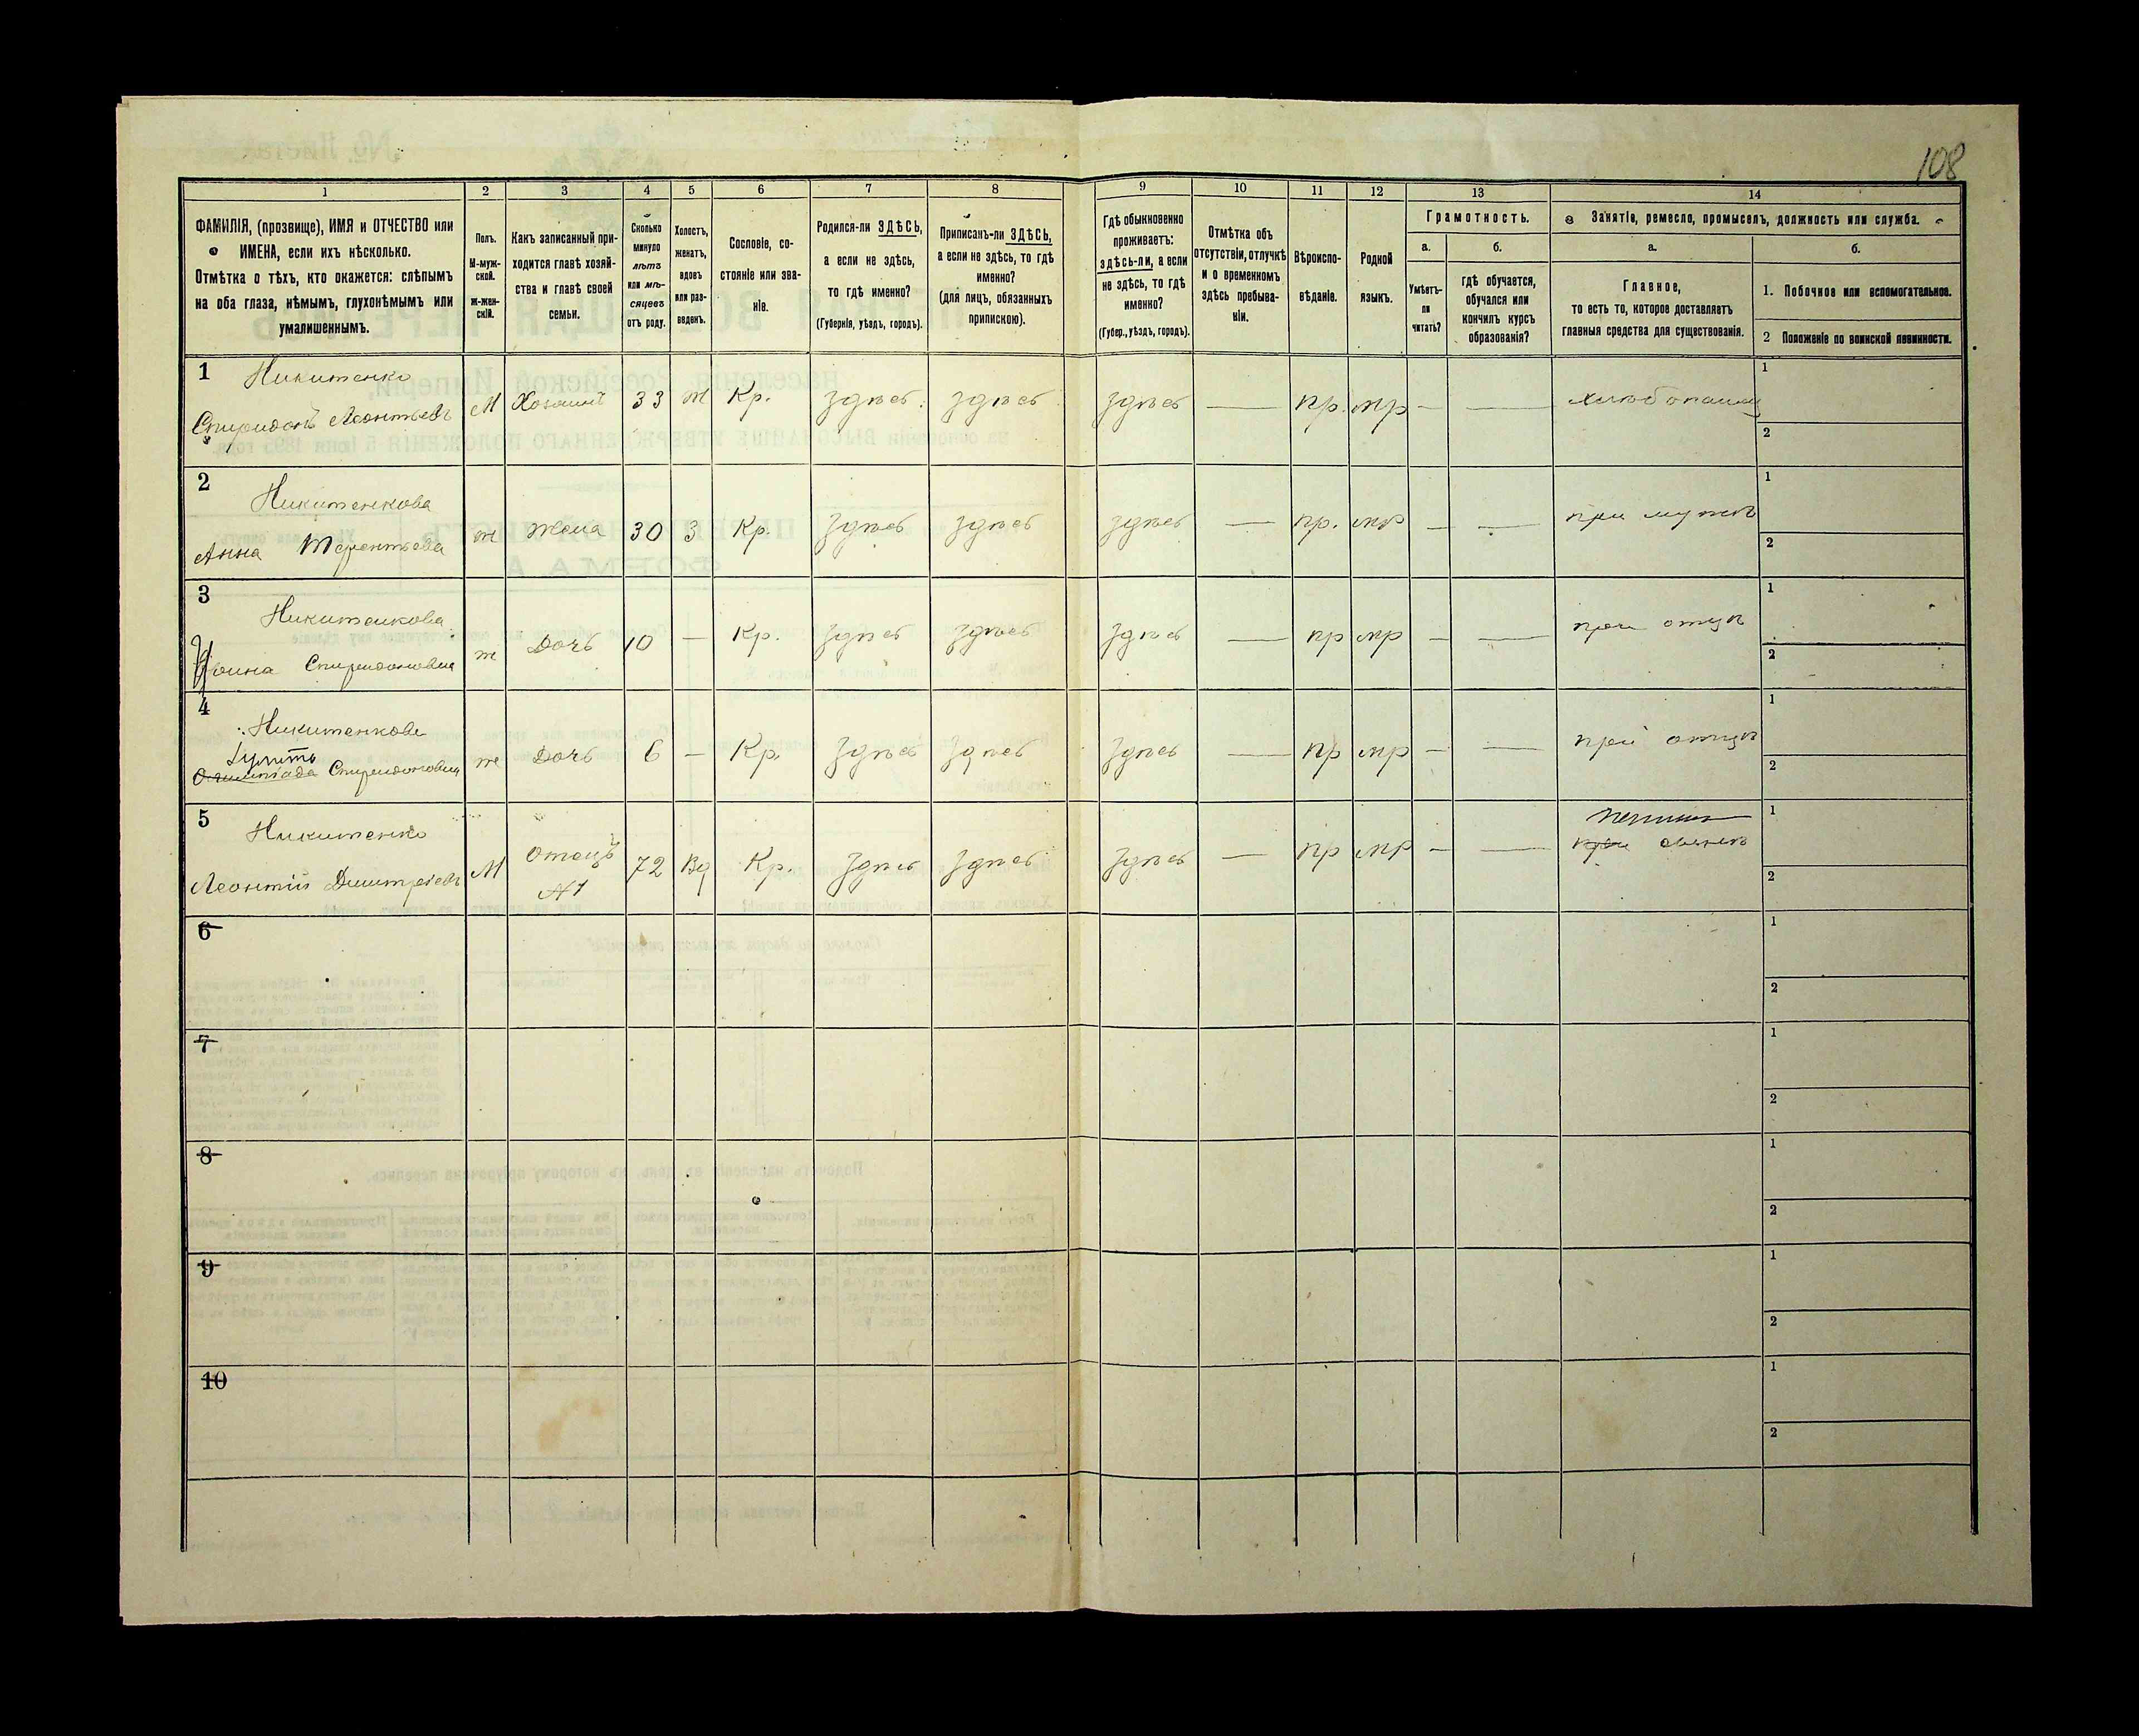 108
1 2 3 4 5 6 7 8 9 10 11 12 13 14
ФАМИЛІЯ, (прозвище), ИМЯ и ОТЧЕСТВО или
ИМЕНА, если ихъ нѣсколько.
Отмѣтка о тѣхъ, кто окажется: слѣпымъ
на оба глаза, нѣмымъ, глухонѣмымъ или
умалишеннымъ.
Полъ.
М-муж-
ской.
Ж-жен-
скій.
Какъ записанный при-
ходится главѣ хозяй-
ства и главѣ своей
семьи.
Сколько
минуло
лѣтъ
или мѣ-
сяцевъ
отъ роду.
Холостъ,
женатъ,
вдовъ
или раз-
веденъ.
Сословіе, со-
стояніе или зва-
ніе.
Родился-ли ЗДѢСЬ,
а если не здѣсь,
то гдѣ именно?
(Губернія, уѣздъ, городъ).
Приписанъ-ли ЗДѢСЬ,
а если не здѣсь, то гдѣ
именно?
(для лицъ, обязанныхъ
припискою).
Гдѣ обыкновенно
проживаетъ:
здѣсь-ли, а если
не здѣсь, то гдѣ
именно?
(Губер., уѣздъ, городъ).
Отмѣтка объ
отсутствіи, отлучкѣ
и о временномъ
здѣсь пребыва-
ніи.
Вѣроиспо-
вѣданіе.
Родной
языкъ.
Грамотность.
а.
Умѣетъ-
ли
читать?
б.
гдѣ обучается,
обучался или
кончилъ курсъ
образованія?
Занятіе, ремесло, промыселъ, должность или служба.
а.
Главное,
то есть то, которое доставляетъ
главныя средства для существованія.
б.
1. Побочное или вспомогательное.
2 Положеніе по воинской повинности.
1 Никитенко
Спиридонъ Леонтьевъ М Хозяинъ 33 ж Кр. здѣсь здѣсь здѣсь — пр. мр — — хлебопашец
1
2
2 Никитенкова
Анна Терентьева ж жена 30 з Кр. здѣсь здѣсь здѣсь — пр. мр — — при мужѣ
1
2
3 Никитенкова
Спиридоновна ж Дочь 10 — Кр. здѣсь здѣсь здѣсь — пр мр — — при отцѣ
1
2
4 Никитенкова
Спиридоновна ж Дочь 6 — Кр. здѣсь здѣсь здѣсь — пр мр — — при отцѣ
1
2
5 Никитенко
Леонтій Дмитріевъ М Отецъ 72 Вд Кр. здѣсь здѣсь здѣсь — пр мр — — при сынѣ
№1
1
2
6
1
2
7
1
2
8
1
2
9
1
2
10
1
2